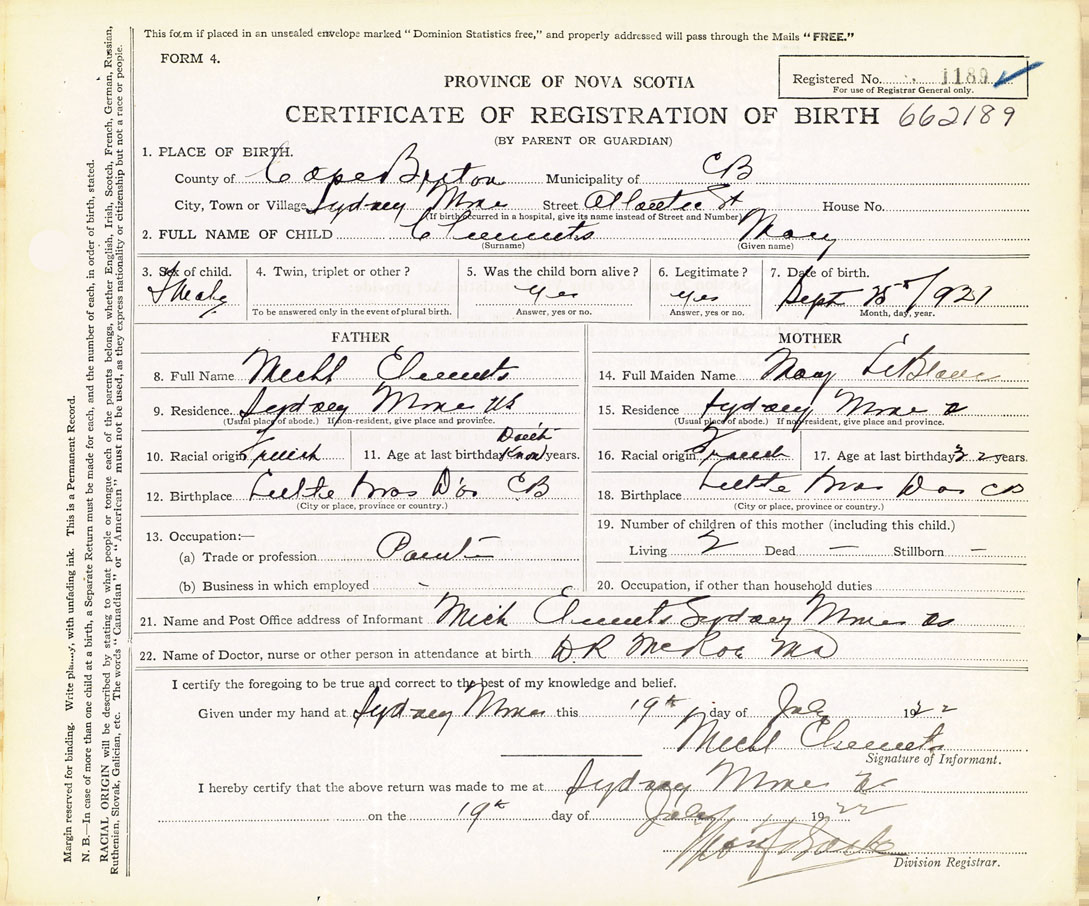 This form if placed in an unsealed envelope marked "Dominion Statistics free," and properly addressed will pass through the Mails "FREE."
FORM 4.
Registered No. 1189
For use of Registrar General only.
PROVINCE OF NOVA SCOTIA
CERTIFICATE OF REGISTRATION OF BIRTH 662189
(BY PARENT OR GUARDIAN)
1. PLACE OF BIRTH.
County of Cape Breton Municipality of CB
City, Town or Village Sydney Mines Street Atlantic St House No.
(If birth occurred in a hospital, give its name instead of Street and Number)
2. FULL NAME OF CHILD Clements Mary
(Surname) (Given name)
3. Sex of child. 4. Twin, triplet or other? 5. Was the child born alive? 6. Legitimate? 7. Date of birth.
Female yes yes Sept 25 1921
To be answered only in the event of plural birth. Answer, yes or no. Answer, yes or no. Month, day, year.
FATHER MOTHER
8. Full Name Michl Clements 14. Full Maiden Name Mary LeBlanc
9. Residence Sydney Mines NS 15. Residence Sydney Mines
(Usual place of abode.) If non-resident, give place and province. (Usual place of abode.) If non-resident, give place and province.
10. Racial origin French 11. Age at last birthday Don't Know years. 16. Racial origin French 17. Age at last birthday 32 years.
12. Birthplace Little Bras D'or CB 18. Birthplace Little Bras Dor CB
(City or place, province or country.) (City or place, province or country.)
13. Occupation:— 19. Number of children of this mother (including this child.)
(a) Trade or profession Painter Living 2 Dead — Stillborn —
(b) Business in which employed - 20. Occupation, if other than household duties
21. Name and Post Office address of Informant Mich Clements Sydney Mines NS
22. Name of Doctor, nurse or other person in attendance at birth DR McRae MD
I certify the foregoing to be true and correct to the best of my knowledge and belief.
Given under my hand at Sydney Mines this 19th day of July 1922
Michl Clements
Signature of Informant.
I hereby certify that the above return was made to me at Sydney Mines
on the 19th day of July 1922
Division Registrar.
Margin reserved for binding. Write plainly, with unfading ink. This is a Permanent Record.
N. B.—In case of more than one child at a birth, a Separate Return must be made for each, and the number of each, in order of birth, stated.
RACIAL ORIGIN will be described by stating to what people or tongue each of the parents belongs, whether English, Irish, Scotch, French, German, Russian,
Ruthenian, Slovak, Galician, etc. The words "Canadian" or "American" must not be used, as they express nationality or citizenship but not a race or people.